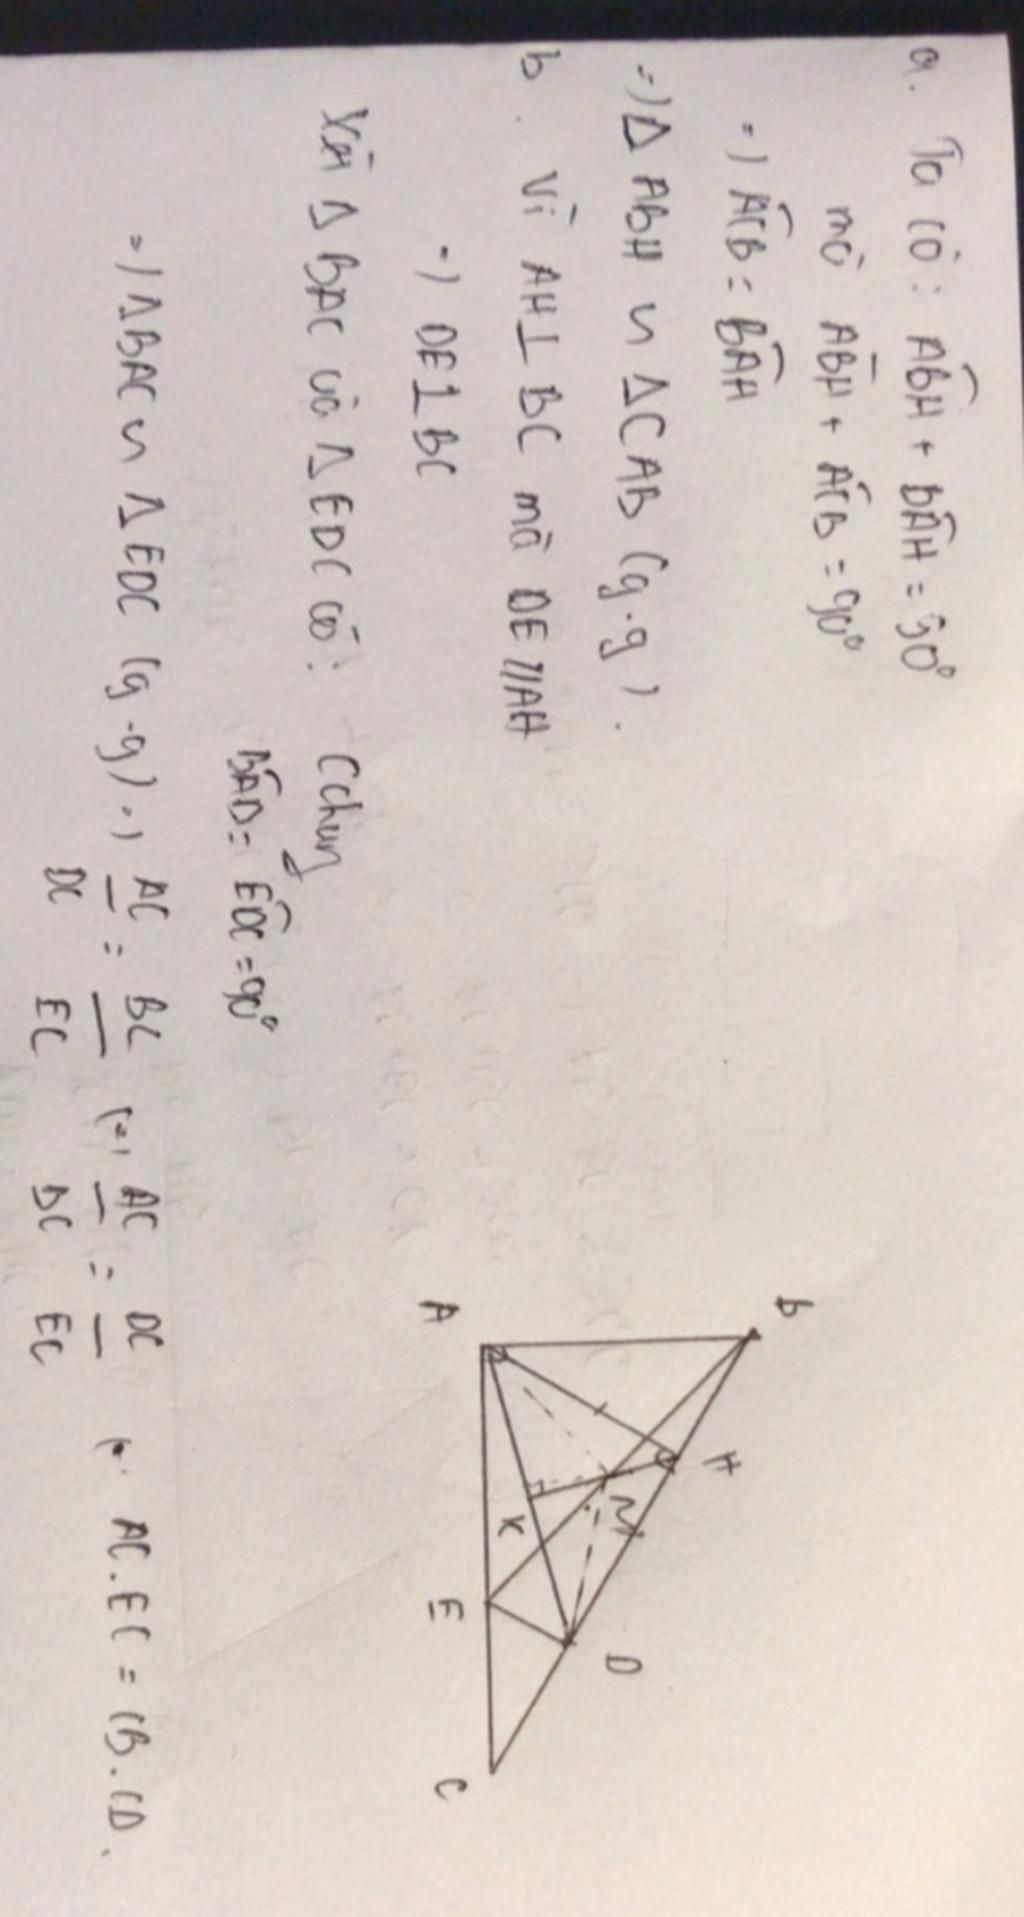 a. Ta có: ABH + BAH = 90°
mà ABH + ACB = 90°
=) ACB = BAH
=) Δ ABH ∽ ΔCAB (g.g).
b. Vì AH⊥BC mà DE//AH
=) DE⊥BC
Xét Δ BAC và Δ EDC có: C chung
BAD = EDC = 90°
=) ΔBAC ∽ Δ EDC (g-g) =) AC/DC = BC/EC (=) AC/DC = DC/EC (=) AC.EC = CB.CD.
B
H
A
M
K
D
E
C